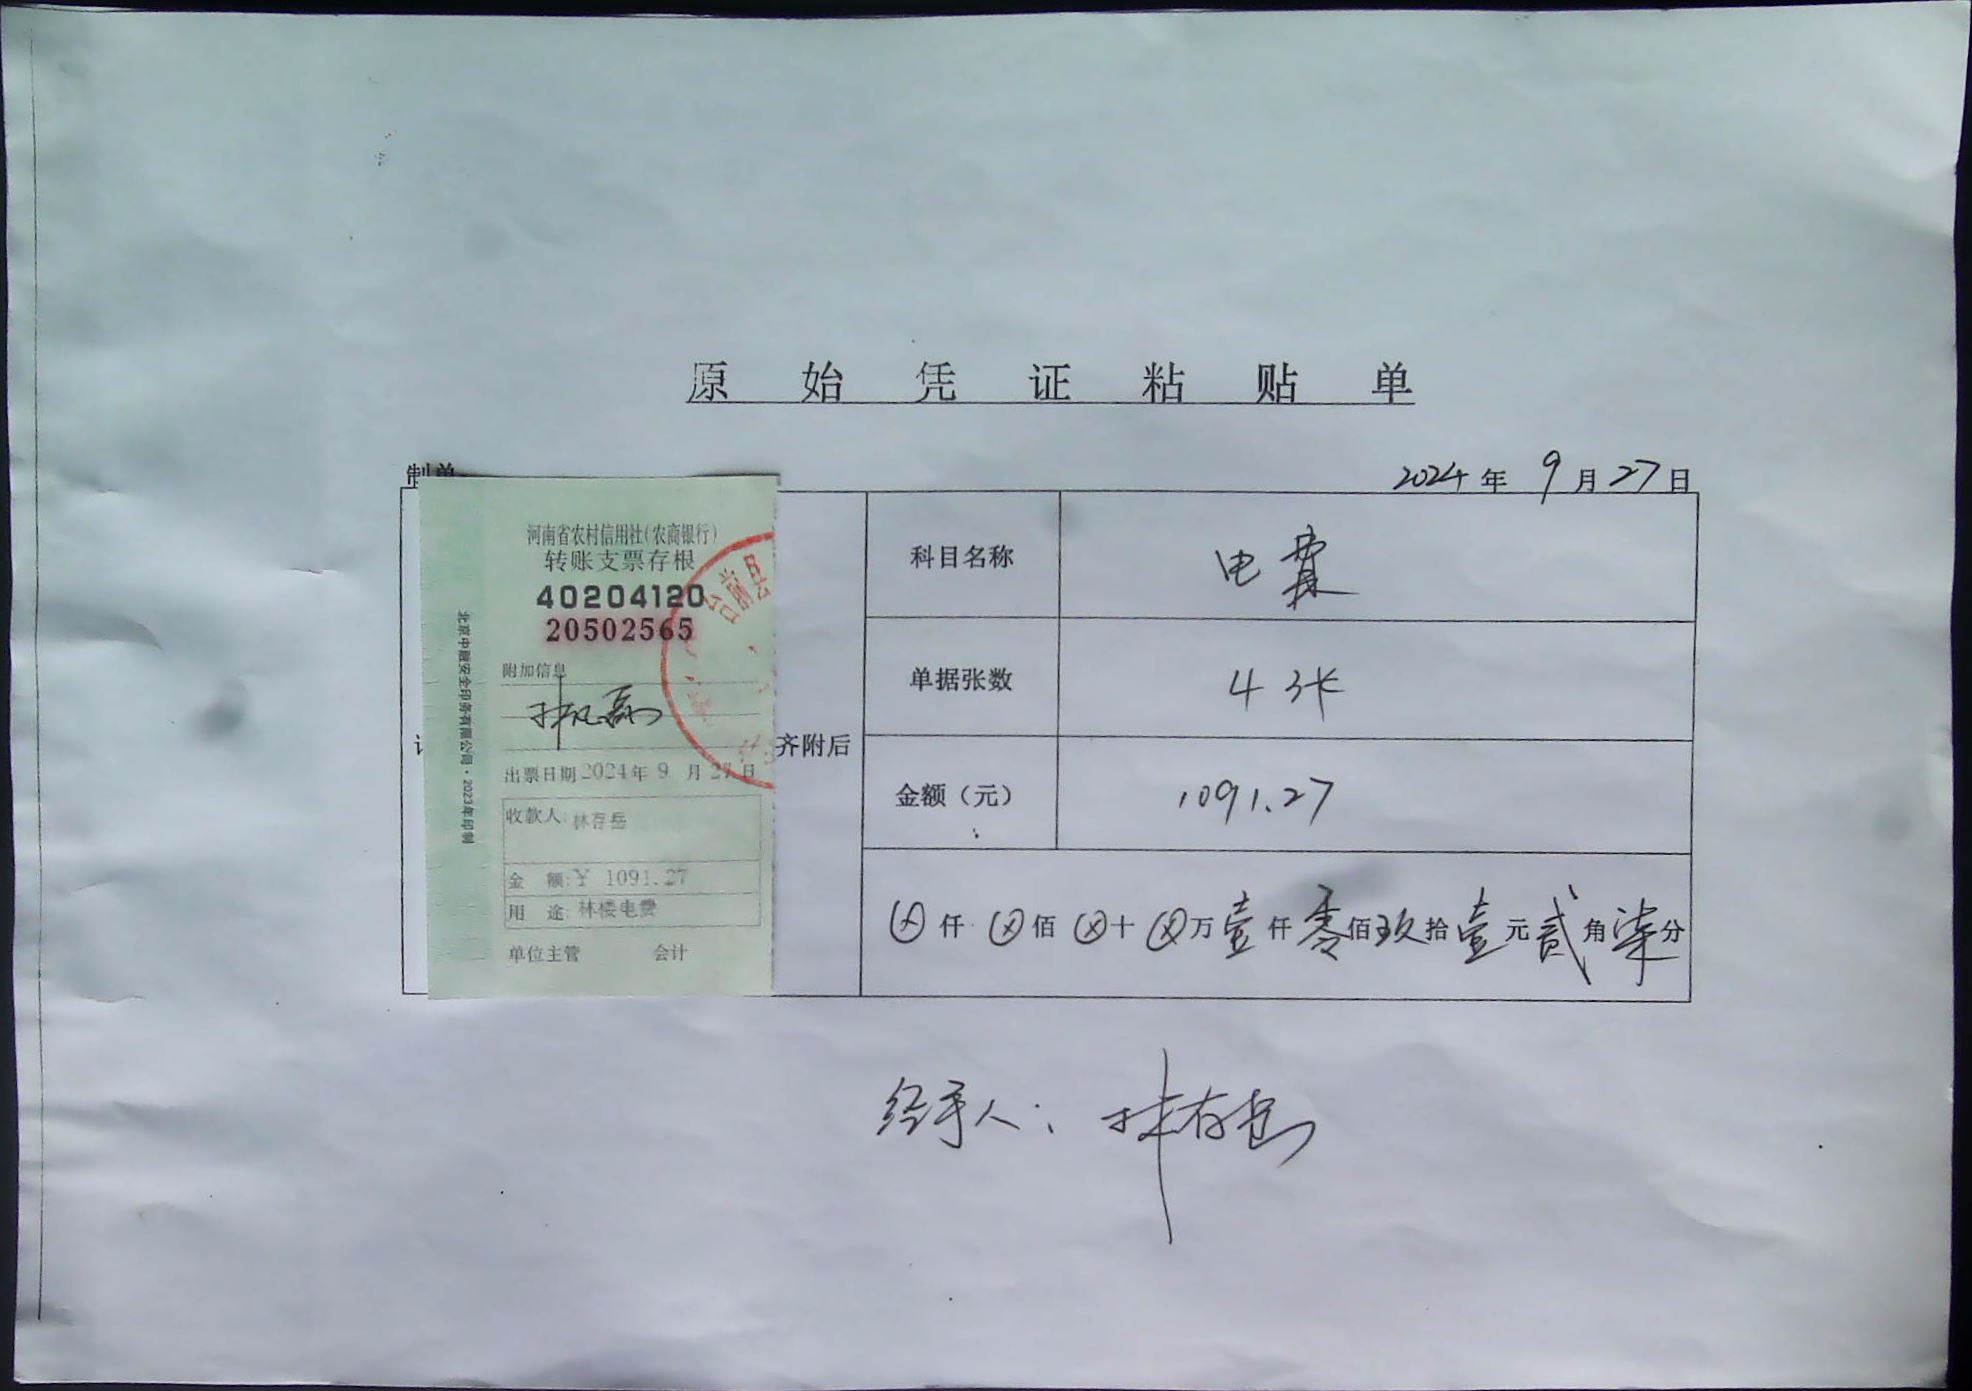 原始凭证粘贴单
制单
2024年9月27日
河南省农村信用社(农商银行)
转账支票存根
40204120
20502565
附加信息
出票日期2024年9月27日
收款人:林存岳
金额:¥1091.27
用途:林楼电费
单位主管 会计
2023年印制
台前县
齐附后
科目名称 电费
单据张数 4张
金额(元) 1091.27
ⓧ仟ⓧ佰ⓧ十ⓧ万壹仟零佰玖拾壹元贰角柒分
经手人:林存岳